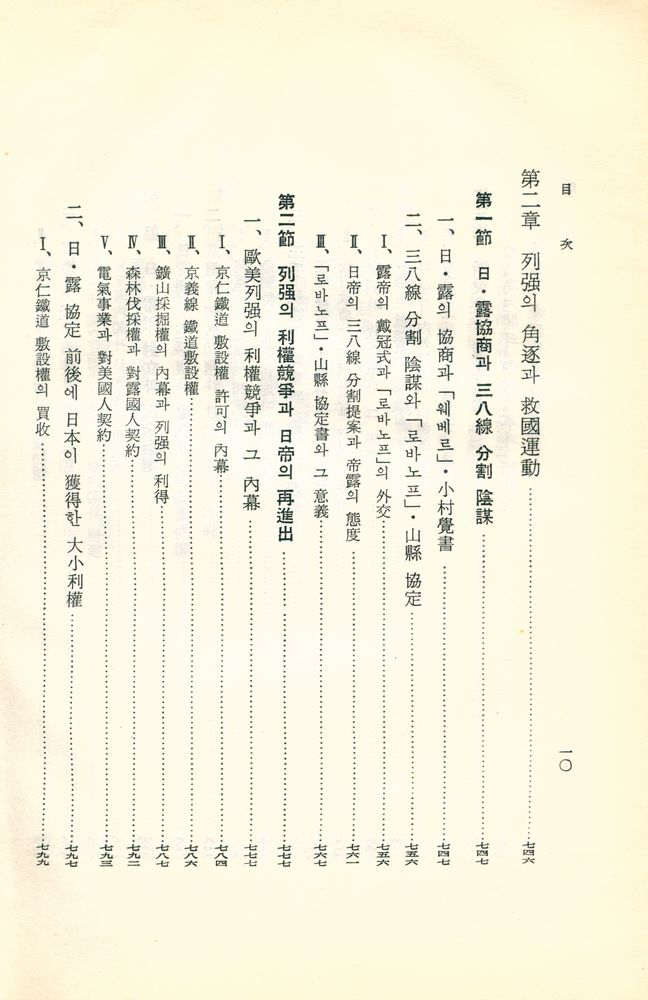 目次
一〇
第二章 列强의 角逐과 救國運動……七四六
第一節 日·露協商과 三八線 分割 陰謀……七四七
一、日·露의 協商과「웨베르」·小村覺書……七四七
二、三八線 分割 陰謀와「로바노프」·山縣 協定……七五六
Ⅰ、露帝의 戴冠式과「로바노프」의 外交……七五六
Ⅱ、日帝의 三八線 分割提案과 帝露의 態度……七六一
Ⅲ、「로바노프」·山縣 協定書와 그 意義……七六七
第二節 列强의 利權競爭과 日帝의 再進出……七七七
一、歐美列强의 利權競爭과 그 內幕……七七七
Ⅰ、京仁鐵道 敷設權 許可의 內幕……七八四
Ⅱ、京義線 鐵道敷設權……七八六
Ⅲ、鑛山採掘權의 內幕과 列强의 利得……七八七
Ⅳ、森林伐採權과 對露國人契約……七九二
Ⅴ、電氣事業과 對美國人契約……七九三
二、日·露 協定 前後에 日本이 獲得한 大小利權……七九七
Ⅰ、京仁鐵道 敷設權의 買收……七九九